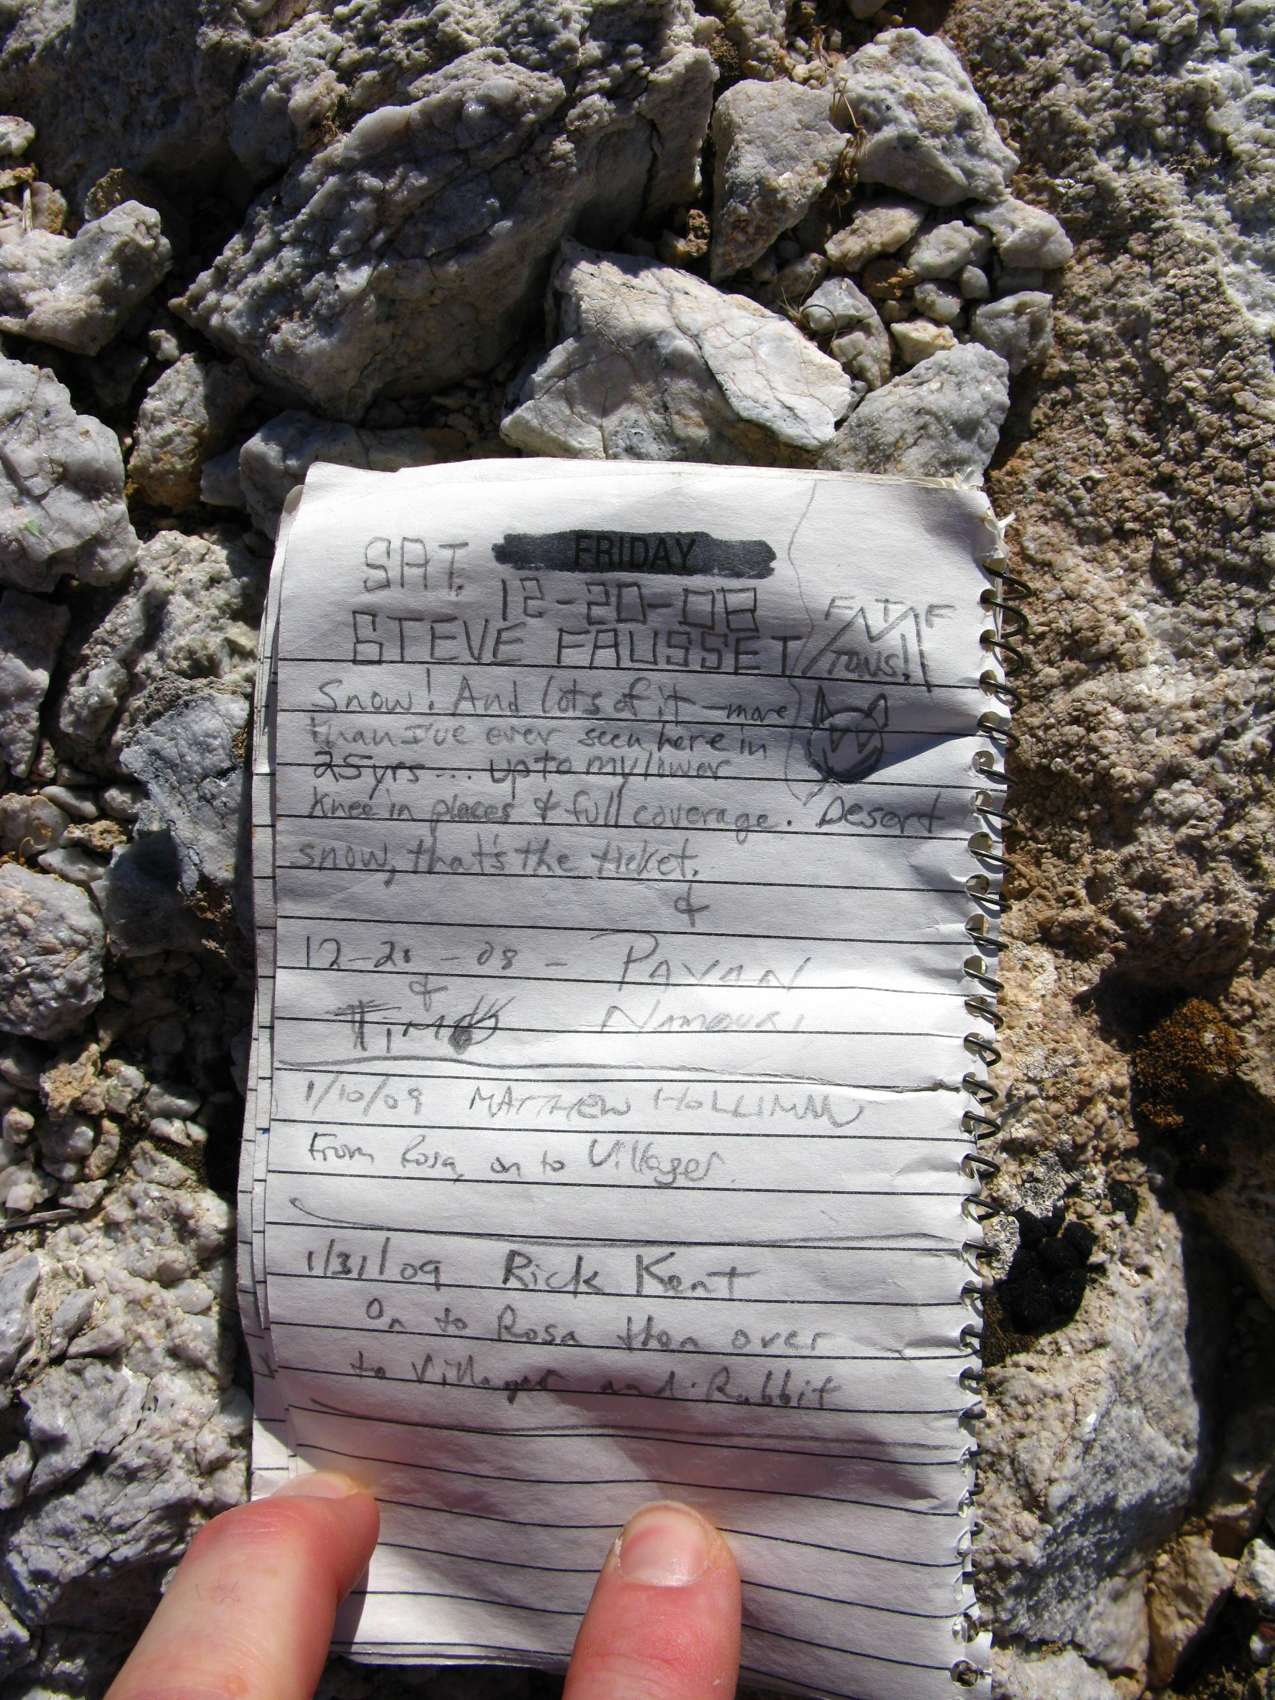 SAT. FRIDAY
12-20-08
STEVE FAUSSET
Snow! And lots of it - more
than I've ever seen here in
25yrs... up to my lower
Knee in places & full coverage. Desert
snow, that's the ticket.
&
12-20-08 - PAVAN
&
Tim
NAMBURI
1/10/09 MATTHEW HOLLIMAN
From Rosa, on to Villager.
1/31/09 Rick Kent
On to Rosa then over
to Villager and Rabbit